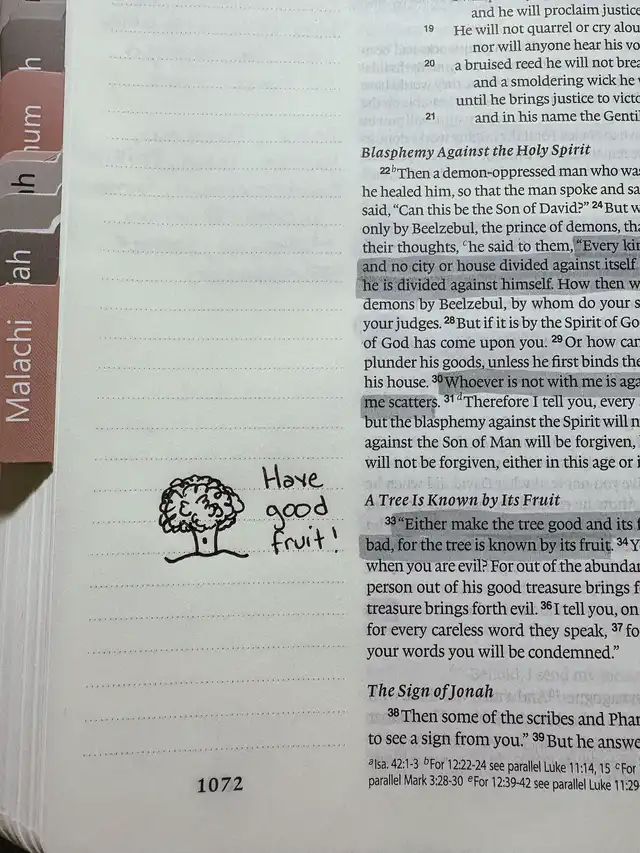 h
num
h
iah
Malachi
and he will proclaim justice
19 He will not quarrel or cry alou
nor will anyone hear his vo
20 a bruised reed he will not brea
and a smoldering wick he
until he brings justice to victo
21 and in his name the Genti
Blasphemy Against the Holy Spirit
22 b Then a demon-oppressed man who was
he healed him, so that the man spoke and sa
said, “Can this be the Son of David?” 24 But w
only by Beelzebul, the prince of demons, tha
their thoughts, c he said to them, “Every kin
and no city or house divided against itself
he is divided against himself. How then w
demons by Beelzebul, by whom do your s
your judges. 28 But if it is by the Spirit of Go
of God has come upon you. 29 Or how can
plunder his goods, unless he first binds the
his house. 30 Whoever is not with me is aga
me scatters. 31 d Therefore I tell you, every
but the blasphemy against the Spirit will n
against the Son of Man will be forgiven,
will not be forgiven, either in this age or i
Have
good
fruit!
A Tree Is Known by Its Fruit
33 “Either make the tree good and its f
bad, for the tree is known by its fruit. 34 Y
when you are evil? For out of the abundan
person out of his good treasure brings f
treasure brings forth evil. 36 I tell you, on
for every careless word they speak, 37 fo
your words you will be condemned.”
The Sign of Jonah
38 Then some of the scribes and Phar
to see a sign from you.” 39 But he answe
a Isa. 42:1-3 b For 12:22-24 see parallel Luke 11:14, 15 c For
parallel Mark 3:28-30 e For 12:39-42 see parallel Luke 11:29-
1072